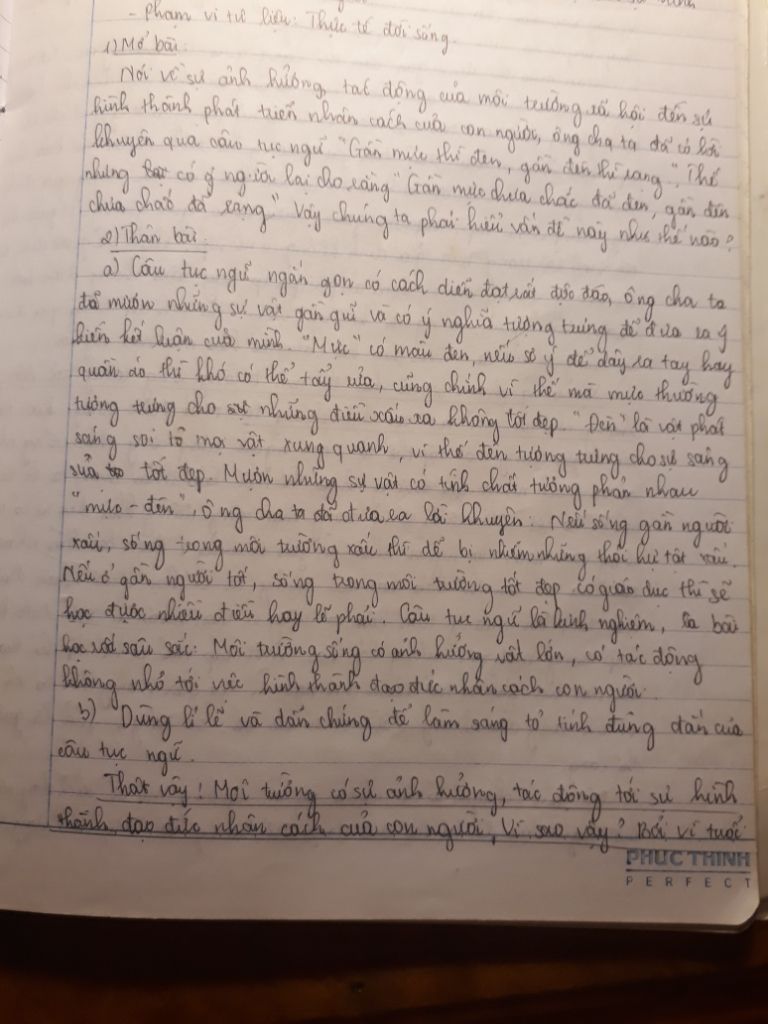 - Phạm vi tư liệu: Thực tế đời sống
1) Mở bài.
Nói về sự ảnh hưởng, tác động của môi trường xã hội đến sự
hình thành phát triển nhân cách của con người, ông cha ta đã có lời
khuyên qua câu tục ngữ "Gần mực thì đen, gần đèn thì rạng". Thế
nhưng có ý người lại cho rằng "Gần mực chưa chắc đã đen, gần đèn
chưa chắc đã rạng" Vậy chúng ta phải hiểu vấn đề này như thế nào?
2) Thân bài.
a) Câu tục ngữ ngắn gọn có cách diễn đạt rất độc đáo, ông cha ta
đã mượn những sự vật gần gũi và có ý nghĩa tượng trưng để đưa ra ý
kiến kết luận của mình. "Mực" có màu đen, nếu sơ ý để dây ra tay hay
quần áo thì khó có thể tẩy rửa, cũng chính vì thế mà mực thường
tượng trưng cho sự những điều xấu xa không tốt đẹp. "Đèn" là vật phát
sáng soi tỏ mọi vật xung quanh, vì thế đèn tượng trưng cho sự sáng
sủa tốt đẹp. Mượn những sự vật có tính chất tương phản nhau
"mực - đèn", ông cha ta đã đưa ra lời khuyên: Nếu sống gần người
xấu, sống trong môi trường xấu thì dễ bị nhiễm những thói hư tật xấu.
Nếu ở gần người tốt, sống trong môi trường tốt đẹp có giáo dục thì sẽ
học được nhiều điều hay lẽ phải. Câu tục ngữ là kinh nghiệm, là bài
học rất sâu sắc: Môi trường sống có ảnh hưởng rất lớn, có tác động
không nhỏ tới việc hình thành đạo đức nhân cách con người.
b) Dùng lí lẽ và dẫn chứng để làm sáng tỏ tính đúng đắn của
câu tục ngữ.
Thật vậy! Môi trường có sự ảnh hưởng, tác động tới sự hình
thành đạo đức nhân cách của con người. Vì sao vậy? Bởi vì tuổi
PHUC THINH
PERFECT